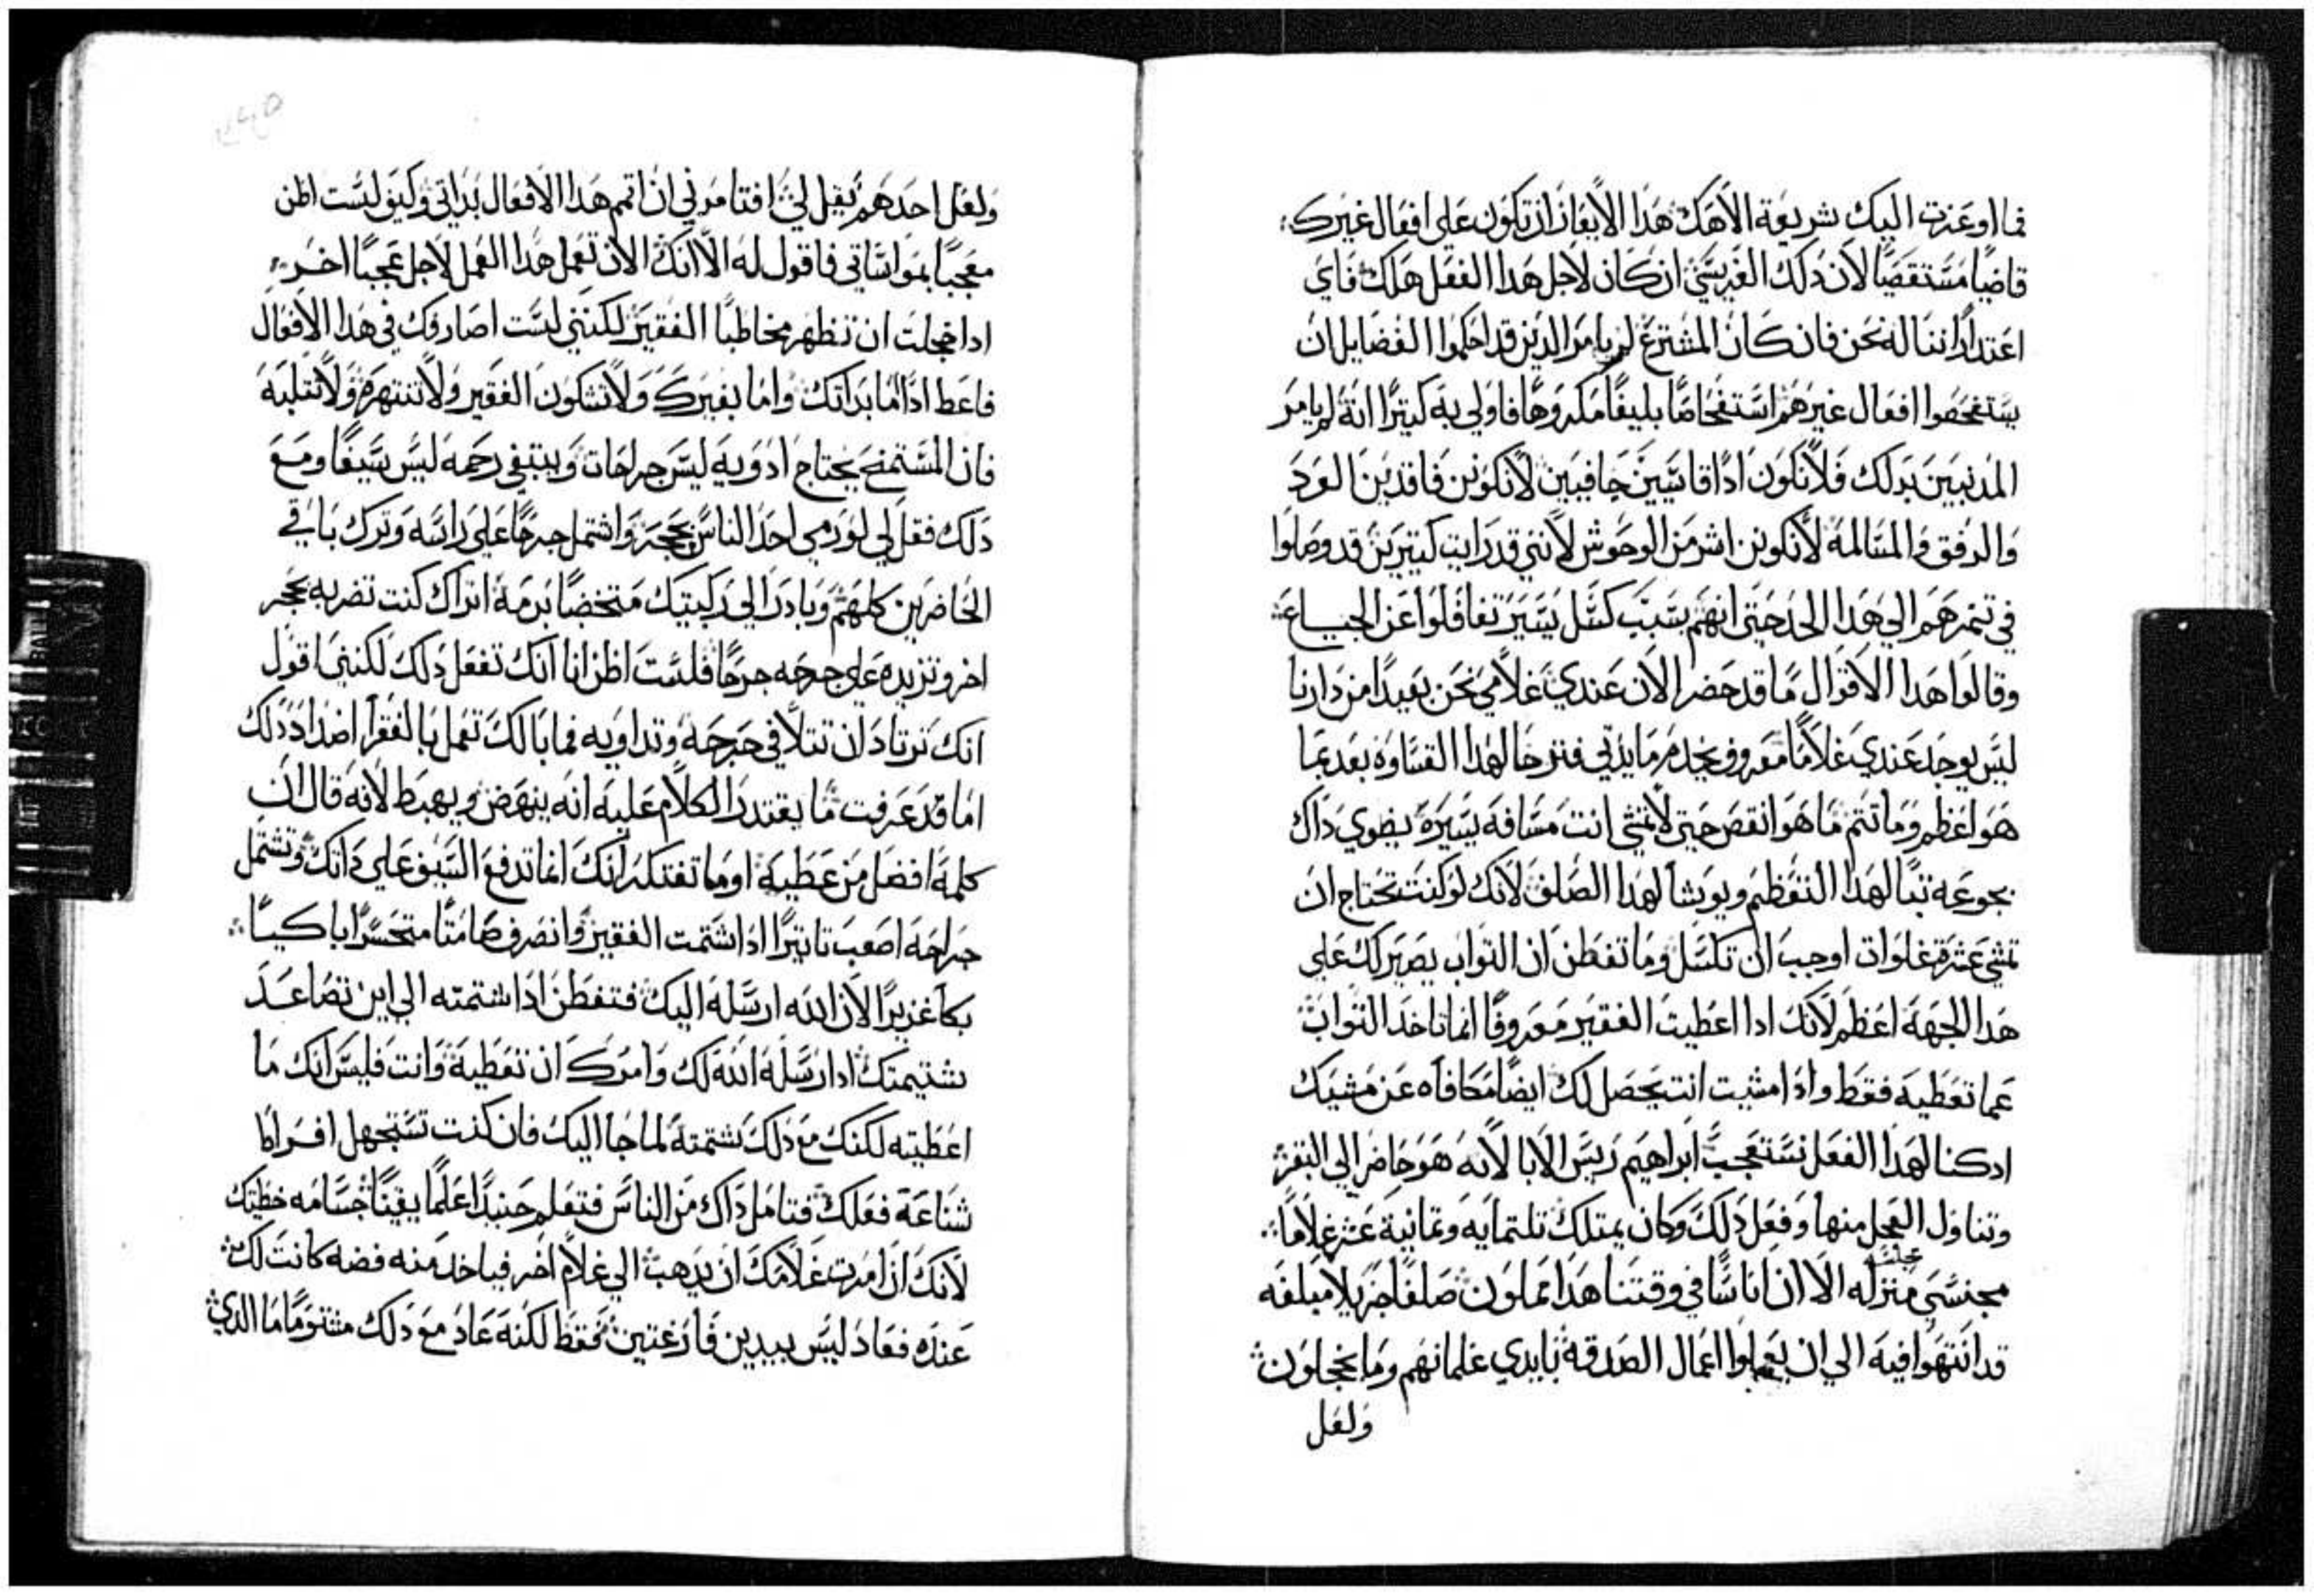 فما اوعزت اليك شريعة الاهك هدا الايعاز ان تكون على افعال غيرك
قاضيًا مستقصيًا لان دلك الغير سيى ان كان لاجل هدا الفعل هلك فاي
اعتدادًا ننا له نحن فان كان المشترع لم يامر الدين قد احكموا الفضايل ان
يستفحصوا افعال غيرهم استفحاصًا بليغًا مكروهًا فاولي به كتيرًا انه لم يامر
المدنبين بدلك فلا نكون ادًا قاسيين جافيين لا نكونن فاقدين الود
والرفق والمسالمة لا نكونن اشر من الوحوش لانني قد رايت كتيرين قد وصلوا
في تنمرهم الي هدا الحد حتي انهم بسبب كسل يسير تغافلوا عن الجياع
وقالوا هدا الاقوال ما قد حضر الان عندي غلامي نحن بعيدًا من دارنا
ليس يوجد عندي غلامًا معروف يخدم مايدتي فترحًا لهدا القساوة بعد بما
هو اعظم وما تتم ما هو انقص حتي لا تمشي انت مسافه يسيرة يضوي داك
بجوعه تبًا لهدا التعظم وبوسًا لهدا الصلف لانك لو كنت تحتاج ان
تمشي عشرة غلوات اوجب ان تكسل وما تفطن ان التواب يصير لك علي
هدا الجهة اعظم لانك ادا اعطيت الفقير معروفًا انما تاخد التواب
عما تعطيه فقط وادا مشيت انت يحصل لك ايضًا مكافاه عن مشيك
ادكنا لهدا الفعل نستعجب ابراهيم ريس الابا لانه هو حاضر الي البقر
وتناول العجل منها وفعل دلك وكان يمتلك تلتمايه وتمانية عشر غلامًا
منزله الا ان اناسًا في وقتنا هدا عملون صلفًا جزيلا مبلغه
قد انتهوا فيه الي ان يعملوا اعمال الصدقة بايدي غلمانهم وما يخجلون
ولعل
ولعل احدهم يقل لي افتامرني ان اتمم هدا الافعال بداتي وكيف لست اظن
معجبًا بمواساتي فاقول له الا انك الان تعمل هدا العمل لاجل عجبًا اخر
ادا خجلت ان تظهر مخاطبًا الفقير لكنني لست اصادفك في هدا الافعال
فاعط ادًا اما بداتك واما بغيرك ولا تشكون الفقير ولا تنتهره ولا تثلبه
فان المستمنح يحتاج ادويه ليس جراحات ويبتغي رحمه ليس سيفًا ومع
دلك فقل لي لو رمي احد الناس بحجر واشتمل جرحًا علي راسه وترك باقي
الحاضرين كلهم وبادر الي ركبتيك متخضبًا بدمه اتراك كنت تضربه بحجر
اخر وتزيده علي جرحه جرحًا فلست اظن انا انك تفعل دلك لكنني اقول
انك ترتاد ان تتلافي جرحه وتداويه فما بالك تعمل بالفقرا اضداد دلك
اما قد عرفت ما يقتدر الكلام عليه انه ينهض ويهبط لانه قال ان
كلمة افضل من عطيه اوما تفتكر انك انما تدفع السيف علي داتك وتشتمل
جراحه اصعب تاتيرًا ادا شتمت الفقير وانصرف صامتًا متحسرًا باكيًا
بكا غزيرًا الان الله ارسله اليك فتفطن ادا شتمته الي اين تصاعد
شتيمتك ادا رسله الله لك وامرك ان تعطيه وانت فليس انك ما
اعطيته لكنك مع دلك شتمته لما جا اليك فان كنت تستجهل افراط
شناعة فعلك فتامل داك من الناس فتعلم حينيدًا علمًا يقينًا جسامه خطيتك
لانك ان امرت غلامك ان يدهب الي غلام اخر فياخد منه فضه كانت لك
عنده فعاد ليس بيدين فارغتين فقط لكنه عاد مع دلك مشتومًا ما الدي